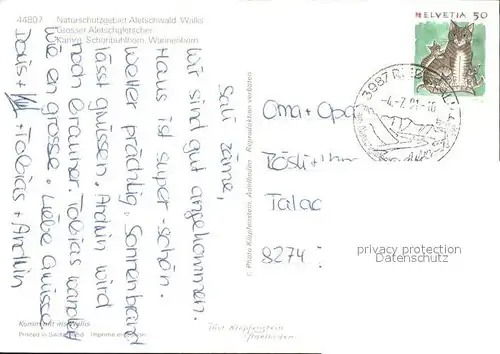 44807 Naturschutzgebiet Aletschwald Wallis
Grosser Aletschgletscher
Kamm, Schönbühlhorn, Wannenhorn
Sali zäme,
wir sind gut angekommen.
Haus ist super-schön.
Wetter prächtig. Sonnenbrand
lässt grüssen. Ardwin wird
noch brauner. Tobias wandert
wie en grosse. Liebe Grüsse
Doris + + Tobias + Ardwin
HELVETIA 50
3987 RIED
-4.-7.91-10
Oma + Opa
Rösli +
Talac
8274
privacy protection
Datenschutz
© Photo Klopfenstein, Adelboden - Reproduktion verboten
Printed in Switzerland Imprimé en
Photo Klopfenstein
Adelboden